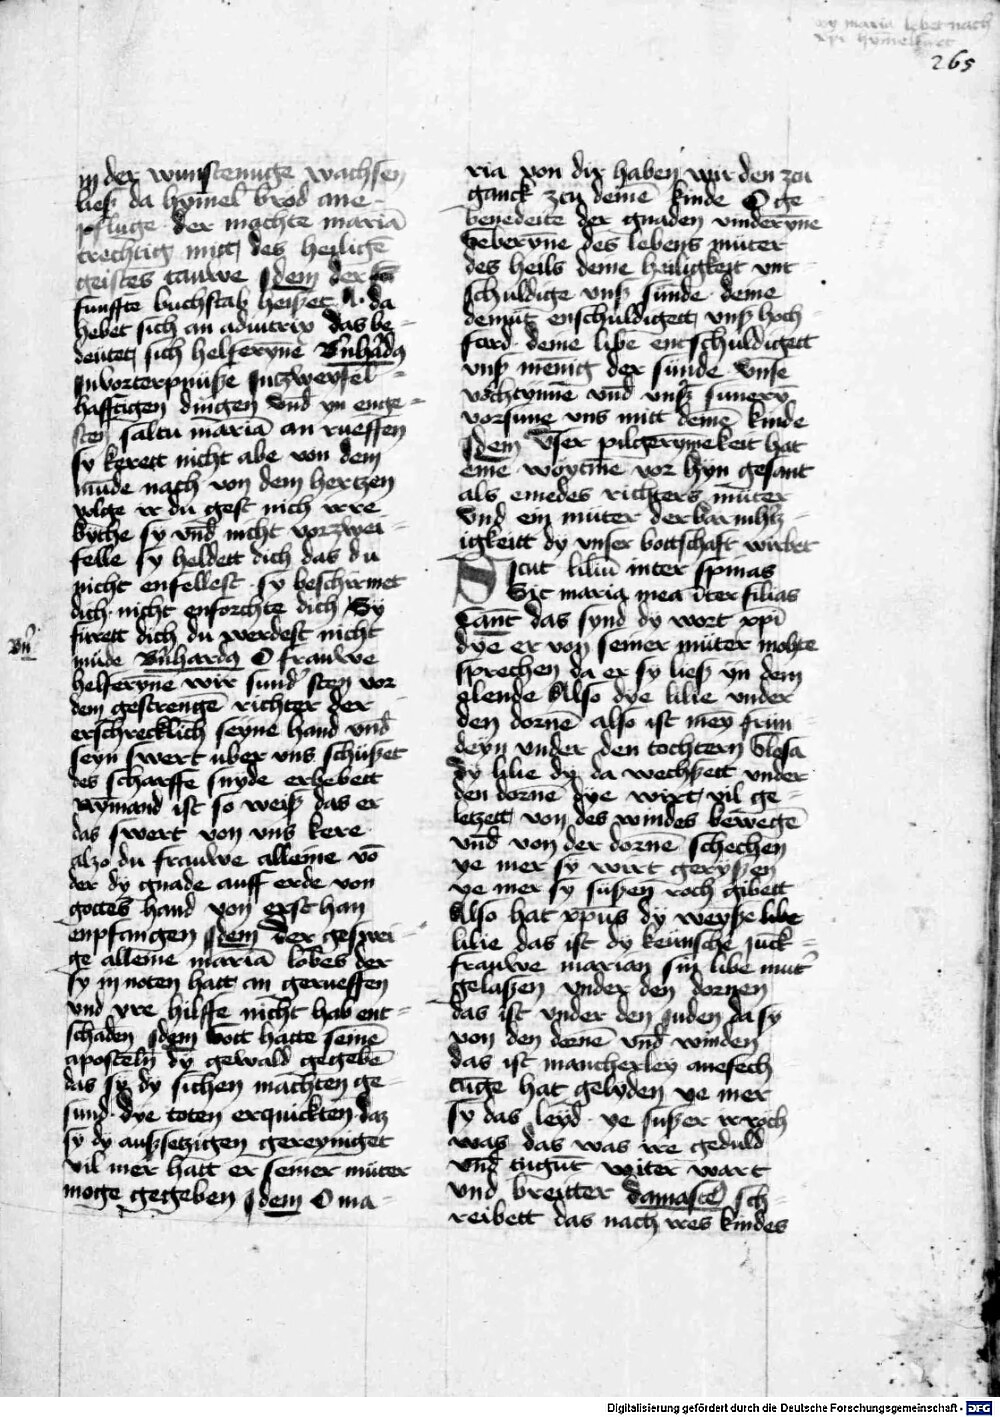 wy maria lebet nach
xpi hymelfart
265
in der wunstenunge wachsen
lies da hymel brod ane
pfluge der machte mariā
trechtig mitt des heiligē
geistes tauwe Idem der
funffte buchstab heiset A da
hebet sich an adiutrix das be-
deutet sich helferyne Bernhardꝯ
In zweyfel-
hafftigen dingen vnd yn enge-
sten saltu mariā an rueffen
sy kerett nicht abe von dem
mude nach von dem hertzen
volge ir du gest nich irre
bythe sy vnd nicht vorzwei-
felle sy heldett dich das du
nicht enfellest sy beschirmet
dich nicht enforchte dich Sy
furett dich du werdest nicht
müde Bernhardꝯ O frauwe
helferyne wir sunder sten vor
dem gestrengē richter der
erschrecklich seyne hand vnd
seyn swert uber vns schüßet
des scharffe snyde erhebett
Nymand ist so weiß das er
das swert von vns kere
alzo du frauwe alleine vō
der dy gnade auff erde von
gottes hand von erst han
enpfangen Idem der geswei-
ge alleine mariā lobes der
sy in noten hatt an gerueffen
vnd yre hilffe nicht hab ent-
schaden Idem gott hatte seinē
aposteln dy gewald gegebē
das sy dy sichen machten ge-
sund dye toten erquickten daz
sy dy außsetzigen gereyniget
vil mer hatt er seiner müter
moge gegeben Idem O ma-
Bn̄
ria von dir haben wir den zcu
ganck zcu deinē kinde O ge-
benedeite der gnaden vinderȳne
Geberȳne des lebens müter
des heils deine heiligkeit ent-
schuldige vnß sünde deine
demut enschuldigett vnß hoch-
fard deine libe entschuldigett
vnß menig der sünde Vnse
vnd vnß sunerȳ
vorsune vns mitt deinē kinde
Idem Vser pilgerymekeit hat
eine vor hyn gesant
als eines richters müter
Vnd ein müter der barmhtz-
igkeitt dy vnser bottschaft wirbet
Sicut liliū inter spinas
Sic maria mea īter filias
Cant das synd dy wort xp̄i
dye er von seiner müter mochte
sprechen da er sy ließ yn dem
elende Also dye lilie vnder
den dornē also ist mey frün-
deyn vnder den tochtern Glosa
dy lilie dy da wechsett vnder
den dornē dye wirt vil ge-
letzett von des windes bewegē
vnd von der dornē schechen
ye mer sy wirt geryßen
ye mer sy süßen roch gibett
Also hat xpus dy weyße libe
lilie das ist dy keünsche juck-
frauwe marian sin libe mut'
gelaßen vnder den dornen
das ist vnder den Juden da sy
von den dornē vnd winden
das ist mancherley anefech
tuge hat gelyden ye mer
sy das leyd ye sußer ir roch
was das was ire geduld
vnd tugūt weiter wart
vnd breitter damascē sch-
reibett das nach ires kindes
Digitalisierung gefördert durch die Deutsche Forschungsgemeinschaft - DFG